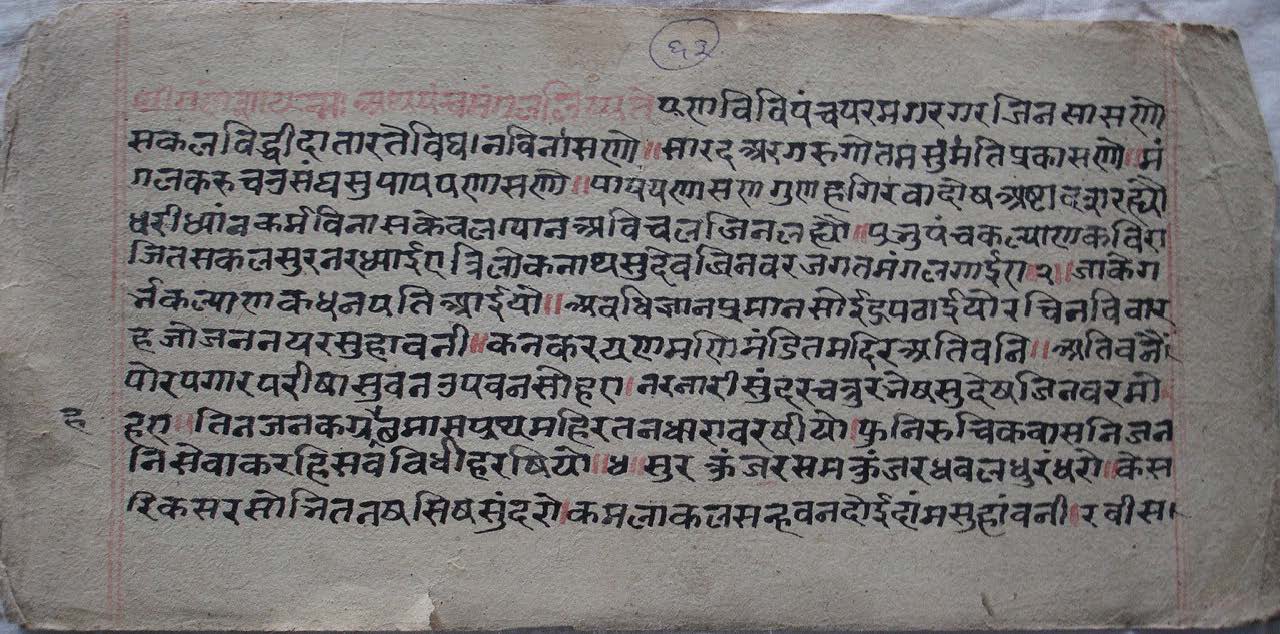 ६३
पणविविपंचपरमगरगरजिनसासणो
सकलविद्धीदातारतेविघानविनांसणो॥सारदअरगरुगोतमसुंमतिप्रकासणो॥मं
गलकरुचउसंघसुपापपणासणो॥पापंपणासणगुणहगिरवादोषअष्टादशरह्यो
धरीध्यांनकर्मविनासकेवलग्यानअविचलजिनलह्यो॥प्रभुपंचकल्याणकविरा
जितसकलसुरनरध्याईए।त्रिलोकनाथसुदेवजिनवरजगतमंगलगाईए२॥जाकेग
र्भकल्याणकधनपतिआईयो॥अवधिज्ञानप्रमानसोईद्रपठाईयोरचिनविवार
हजोजननयरसुहावनी॥कनकरयणमणिमंडितमदिरअतिवनि॥अतिवनै
पोरपगारपरीषासुवनउपवनसोहए।नरनारीसुंदरचतुरभेषसुदेषजिनवरमो
हए॥तिनजनकग्रेहछमासप्रथमहिरतनधारावरषीयो।फुनिरुचिकवासनिजन
ह
निसेवाकरहिसर्वविधीहरषियो॥५सुरकुंजरसमकुंजरधवलधुरंधरो॥केस
रिकसरसोभितनषसिषसुंदरो।कमलाकलसन्हवनदोईदांमसुहांवनी॥रवीस।